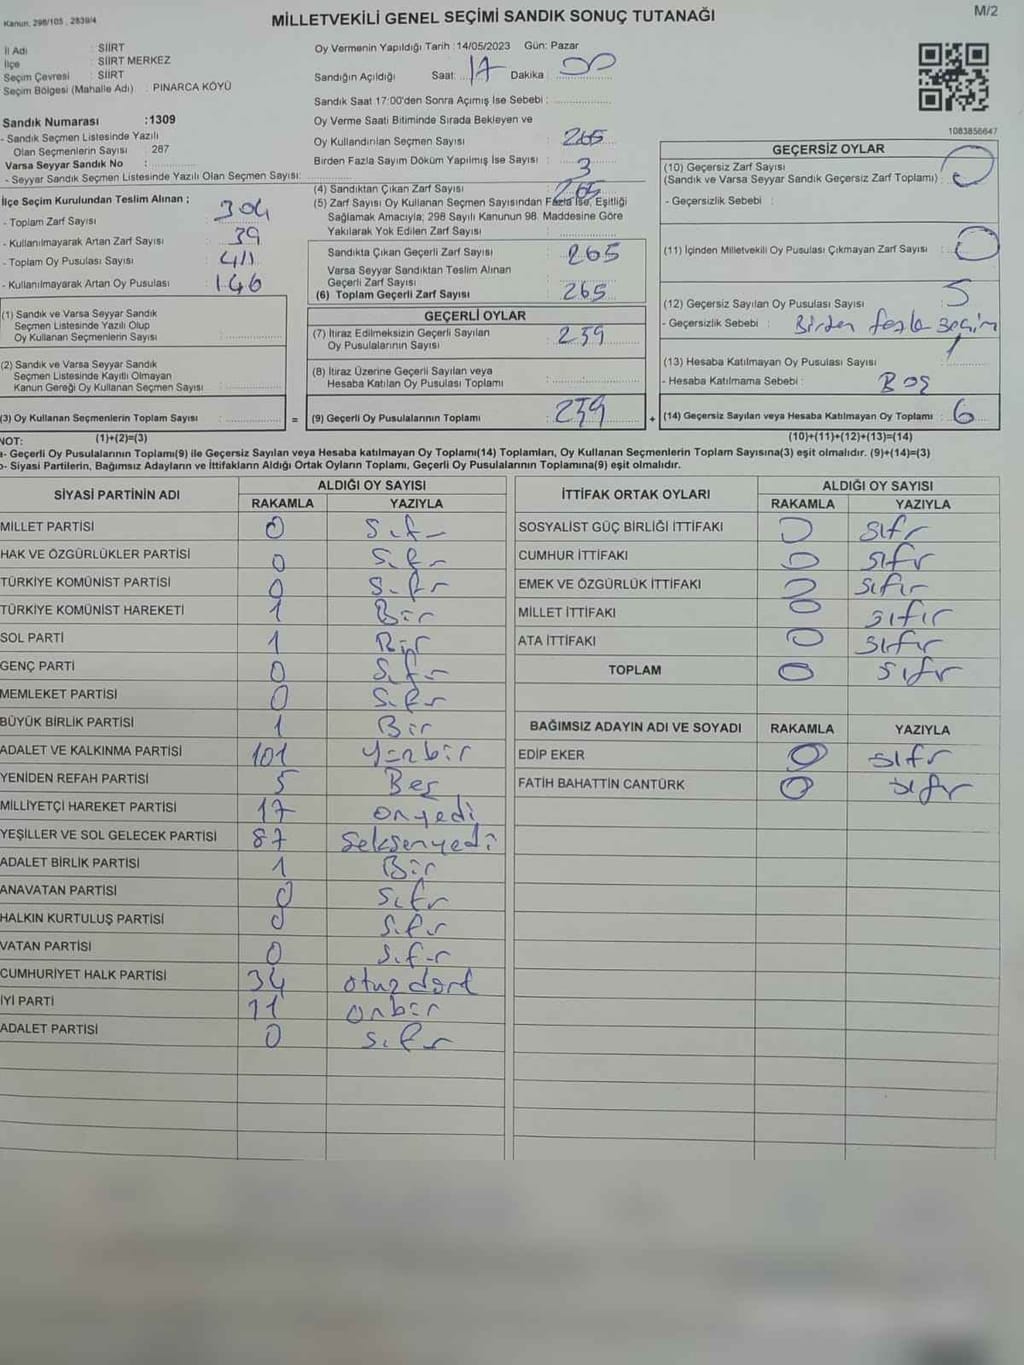 Kanun, 298/105 , 2839/4
MİLLETVEKİLİ GENEL SEÇİMİ SANDIK SONUÇ TUTANAĞI
M/2
İl Adı : SİİRT
İlçe : SİİRT MERKEZ
Seçim Çevresi : SİİRT
Seçim Bölgesi (Mahalle Adı) : PINARCA KÖYÜ
Sandık Numarası :1309
- Sandık Seçmen Listesinde Yazılı
Olan Seçmenlerin Sayısı : 287
Varsa Seyyar Sandık No :
- Seyyar Sandık Seçmen Listesinde Yazılı Olan Seçmen Sayısı:
İlçe Seçim Kurulundan Teslim Alınan ;
- Toplam Zarf Sayısı : 304
- Kullanılmayarak Artan Zarf Sayısı : 39
- Toplam Oy Pusulası Sayısı : 411
- Kullanılmayarak Artan Oy Pusulası : 146
(1) Sandık ve Varsa Seyyar Sandık
Seçmen Listesinde Yazılı Olup
Oy Kullanan Seçmenlerin Sayısı :
(2) Sandık ve Varsa Seyyar Sandık
Seçmen Listesinde Kayıtlı Olmayan
Kanun Gereği Oy Kullanan Seçmen Sayısı :
(3) Oy Kullanan Seçmenlerin Toplam Sayısı :
Oy Vermenin Yapıldığı Tarih :14/05/2023 Gün: Pazar
Sandığın Açıldığı Saat: 17 Dakika : 00
Sandık Saat 17:00'den Sonra Açımış İse Sebebi :
Oy Verme Saati Bitiminde Sırada Bekleyen ve
Oy Kullandırılan Seçmen Sayısı : 265
Birden Fazla Sayım Döküm Yapılmış İse Sayısı : 3
(4) Sandıktan Çıkan Zarf Sayısı : 265
(5) Zarf Sayısı Oy Kullanan Seçmen Sayısından Fazla İse, Eşitliği
Sağlamak Amacıyla; 298 Sayılı Kanunun 98. Maddesine Göre
Yakılarak Yok Edilen Zarf Sayısı :
Sandıkta Çıkan Geçerli Zarf Sayısı : 265
Varsa Seyyar Sandıktan Teslim Alınan
Geçerli Zarf Sayısı :
(6) Toplam Geçerli Zarf Sayısı : 265
GEÇERLİ OYLAR
(7) İtiraz Edilmeksizin Geçerli Sayılan
Oy Pusulalarının Sayısı : 259
(8) İtiraz Üzerine Geçerli Sayılan veya
Hesaba Katılan Oy Pusulası Toplamı :
= (9) Geçerli Oy Pusulalarının Toplamı : 259
1083856647
GEÇERSİZ OYLAR
(10) Geçersiz Zarf Sayısı
(Sandık ve Varsa Seyyar Sandık Geçersiz Zarf Toplamı) : 0
- Geçersizlik Sebebi :
(11) İçinden Milletvekili Oy Pusulası Çıkmayan Zarf Sayısı : 0
(12) Geçersiz Sayılan Oy Pusulası Sayısı : 5
- Geçersizlik Sebebi : Birden fazla seçim
(13) Hesaba Katılmayan Oy Pusulası Sayısı : 1
- Hesaba Katılmama Sebebi : Boş
+ (14) Geçersiz Sayılan veya Hesaba Katılmayan Oy Toplamı : 6
NOT: (1)+(2)=(3) (10)+(11)+(12)+(13)=(14)
a- Geçerli Oy Pusulalarının Toplamı(9) ile Geçersiz Sayılan veya Hesaba katılmayan Oy Toplamı(14) Toplamları, Oy Kullanan Seçmenlerin Toplam Sayısına(3) eşit olmalıdır. (9)+(14)=(3)
b- Siyasi Partilerin, Bağımsız Adayların ve İttifakların Aldığı Ortak Oyların Toplamı, Geçerli Oy Pusulalarının Toplamına(9) eşit olmalıdır.
SİYASİ PARTİNİN ADI ALDIĞI OY SAYISI
RAKAMLA YAZIYLA
MİLLET PARTİSİ 0 Sıfır
HAK VE ÖZGÜRLÜKLER PARTİSİ 0 Sıfır
TÜRKİYE KOMÜNİST PARTİSİ 0 Sıfır
TÜRKİYE KOMÜNİST HAREKETİ 1 Bir
SOL PARTİ 1 Bir
GENÇ PARTİ 0 Sıfır
MEMLEKET PARTİSİ 0 Sıfır
BÜYÜK BİRLİK PARTİSİ 1 Bir
ADALET VE KALKINMA PARTİSİ 101 yüzbir
YENİDEN REFAH PARTİSİ 5 Beş
MİLLİYETÇİ HAREKET PARTİSİ 17 onyedi
YEŞİLLER VE SOL GELECEK PARTİSİ 87 Seksenyedi
ADALET BİRLİK PARTİSİ 1 Bir
ANAVATAN PARTİSİ 0 Sıfır
HALKIN KURTULUŞ PARTİSİ 0 Sıfır
VATAN PARTİSİ 0 Sıfır
CUMHURİYET HALK PARTİSİ 34 otuzdört
İYİ PARTİ 11 onbir
ADALET PARTİSİ 0 Sıfır
İTTİFAK ORTAK OYLARI ALDIĞI OY SAYISI
RAKAMLA YAZIYLA
SOSYALİST GÜÇ BİRLİĞİ İTTİFAKI 0 sıfır
CUMHUR İTTİFAKI 0 sıfır
EMEK VE ÖZGÜRLÜK İTTİFAKI 0 sıfır
MİLLET İTTİFAKI 0 sıfır
ATA İTTİFAKI 0 sıfır
TOPLAM 0 sıfır
BAĞIMSIZ ADAYIN ADI VE SOYADI RAKAMLA YAZIYLA
EDİP EKER 0 sıfır
FATİH BAHATTİN CANTÜRK 0 sıfır